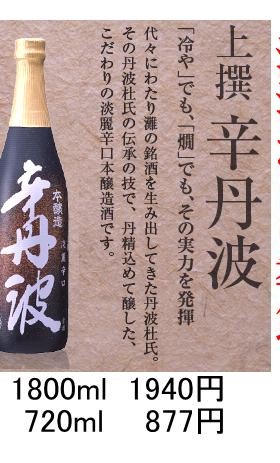 上撰 辛丹波
「冷や」でも、「燗」でも、その実力を発揮
代々にわたり灘の銘酒を生み出してきた丹波杜氏。
その丹波杜氏の伝承の技で、丹精込めて醸した、
こだわりの淡麗辛口本醸造酒です。
本醸造
淡麗辛口
辛丹波
1800ml 1940円
720ml 877円